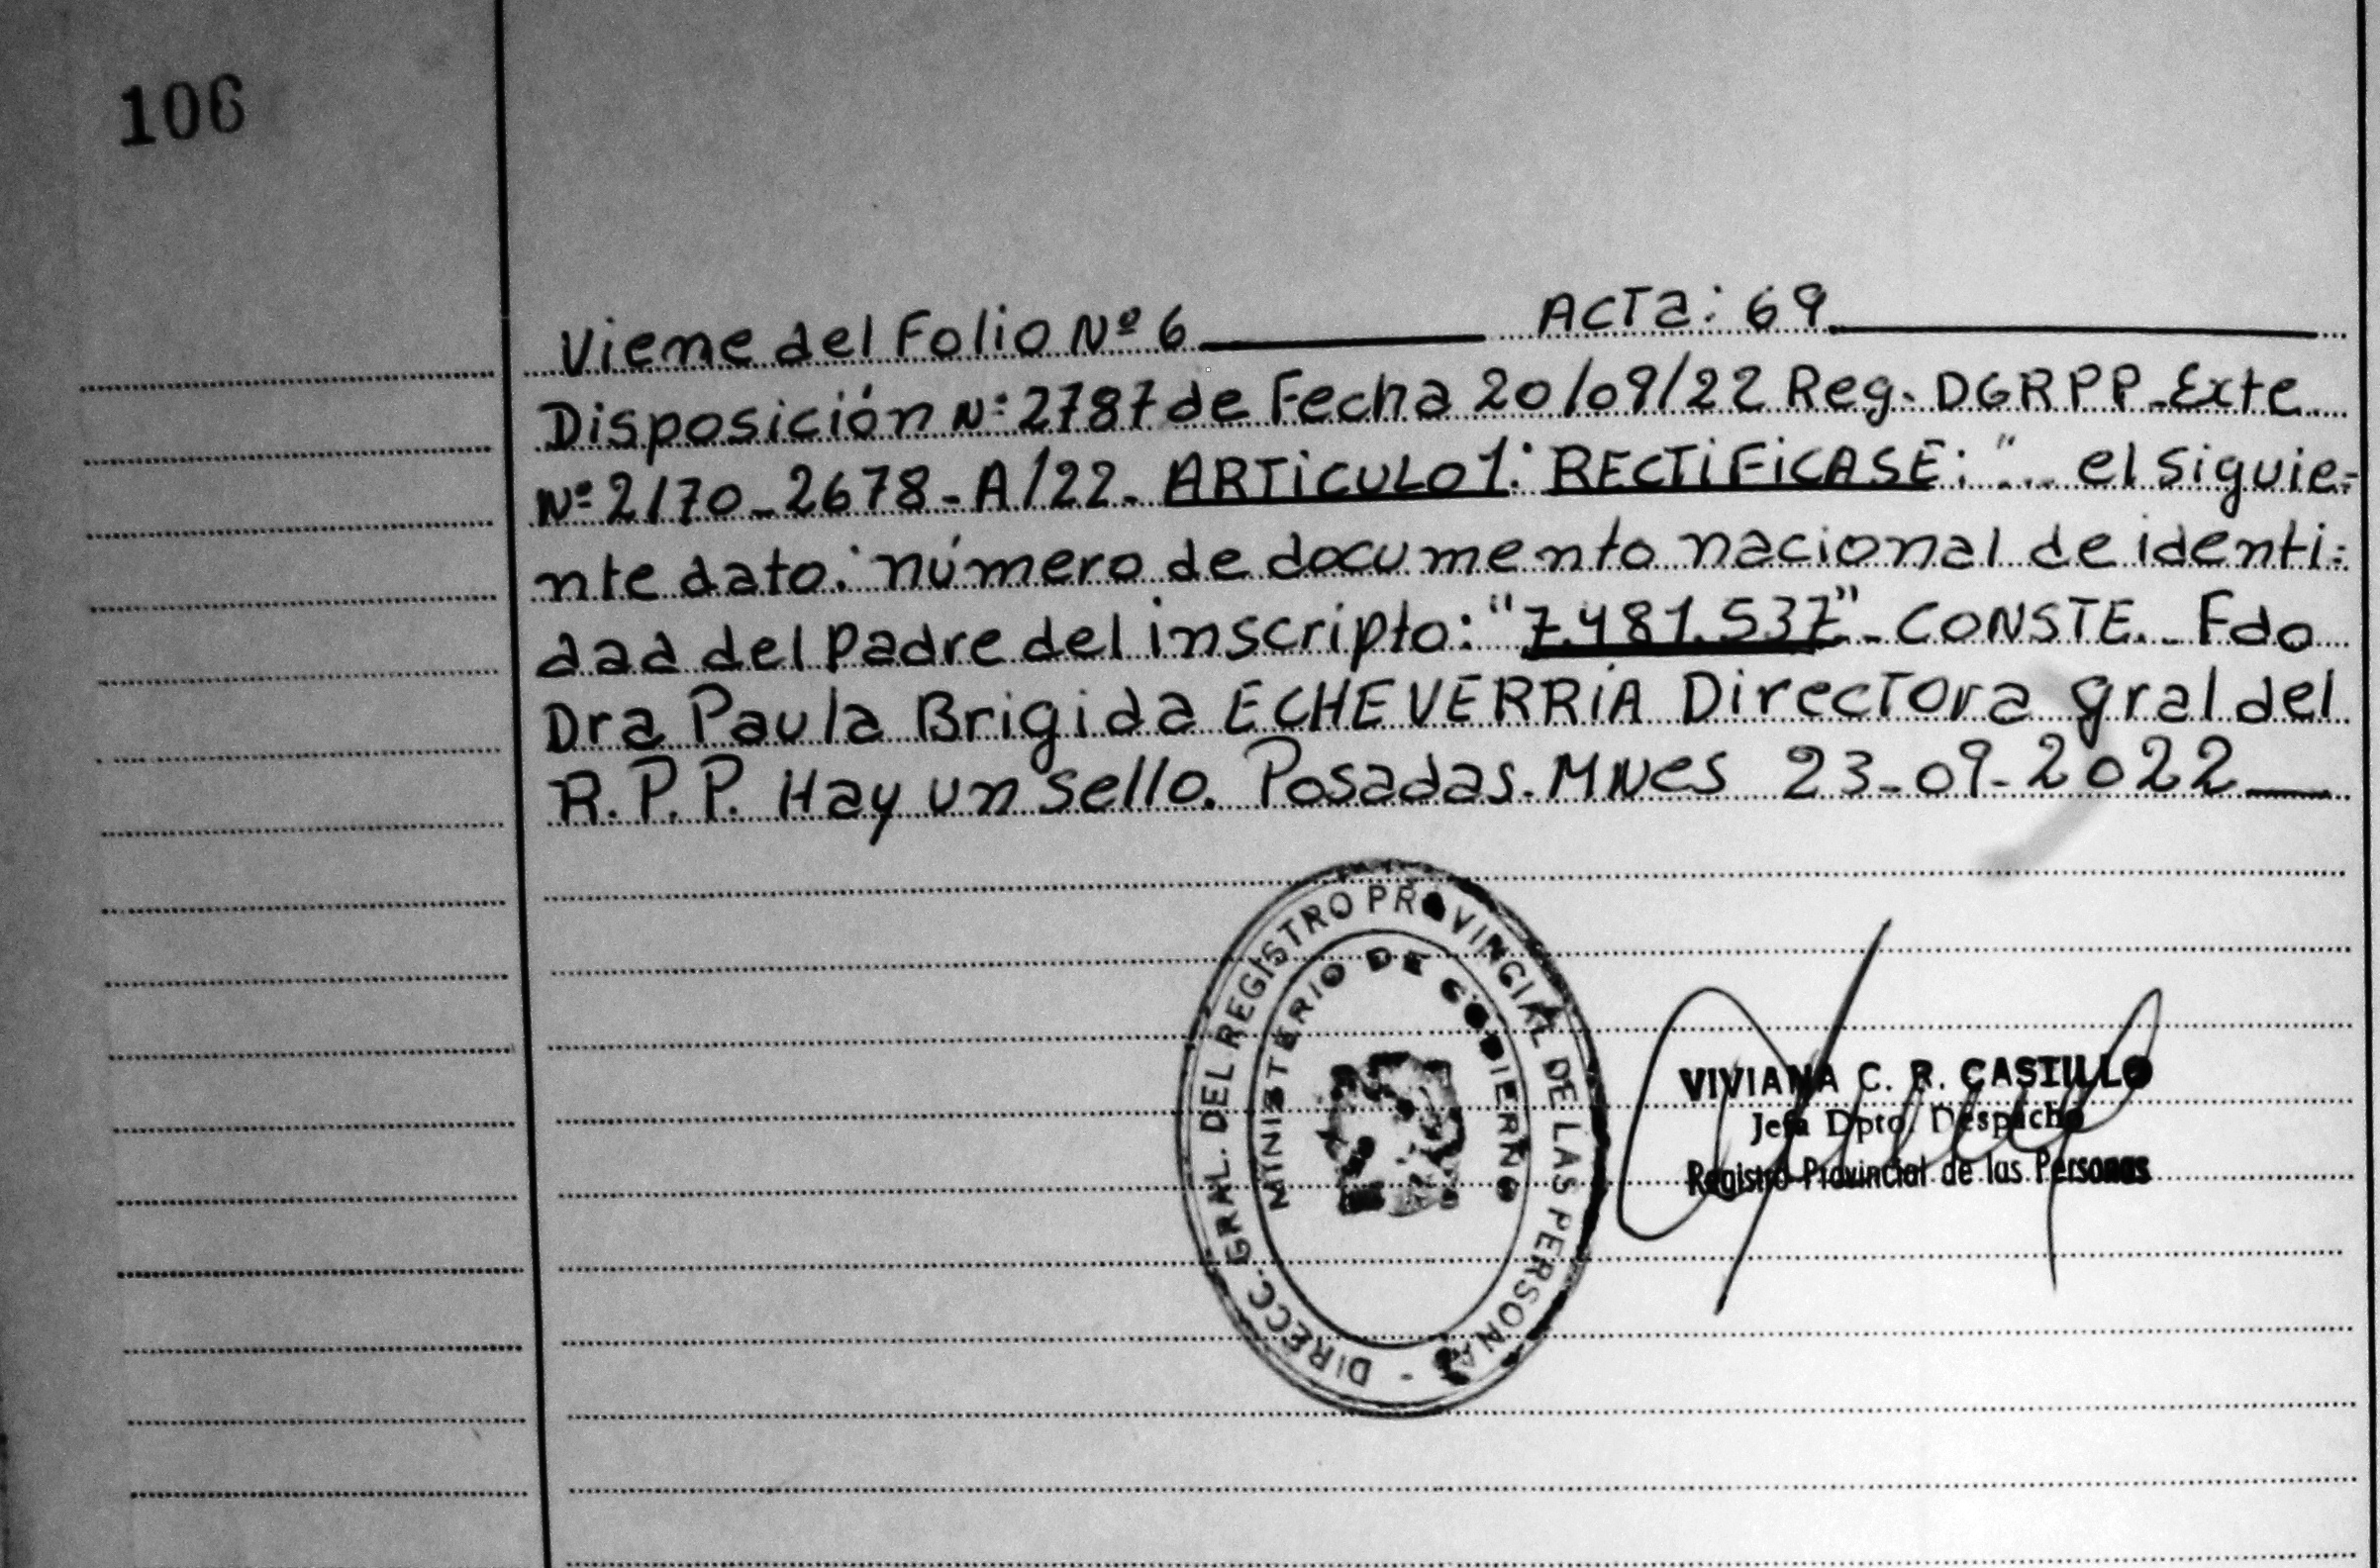 106
Viene del Folio Nº 6 ACTa: 69
Disposición Nº 2787 de Fecha 20/09/22 Reg. DGRPP_Exte
Nº 2170_2678_A/22_ ARTiCULO 1: RECTiFiCASE: "... el siguie-
nte dato: número de documento nacional de identi-
dad del padre del inscripto: "7.481.537"_ CONSTE._ Fdo
Dra Paula Brigida ECHEVERRiA Directora gral del
R.P.P. Hay un sello. Posadas. MNes 23-09-2022
DIRECC. GRAL. DEL REGISTRO PROVINCIAL DE LAS PERSONAS -
MINISTERIO DE GOBIERNO
VIVIANA C. R. CASTILLO
Jefa Dpto. Despacho
Registro Provincial de las Personas